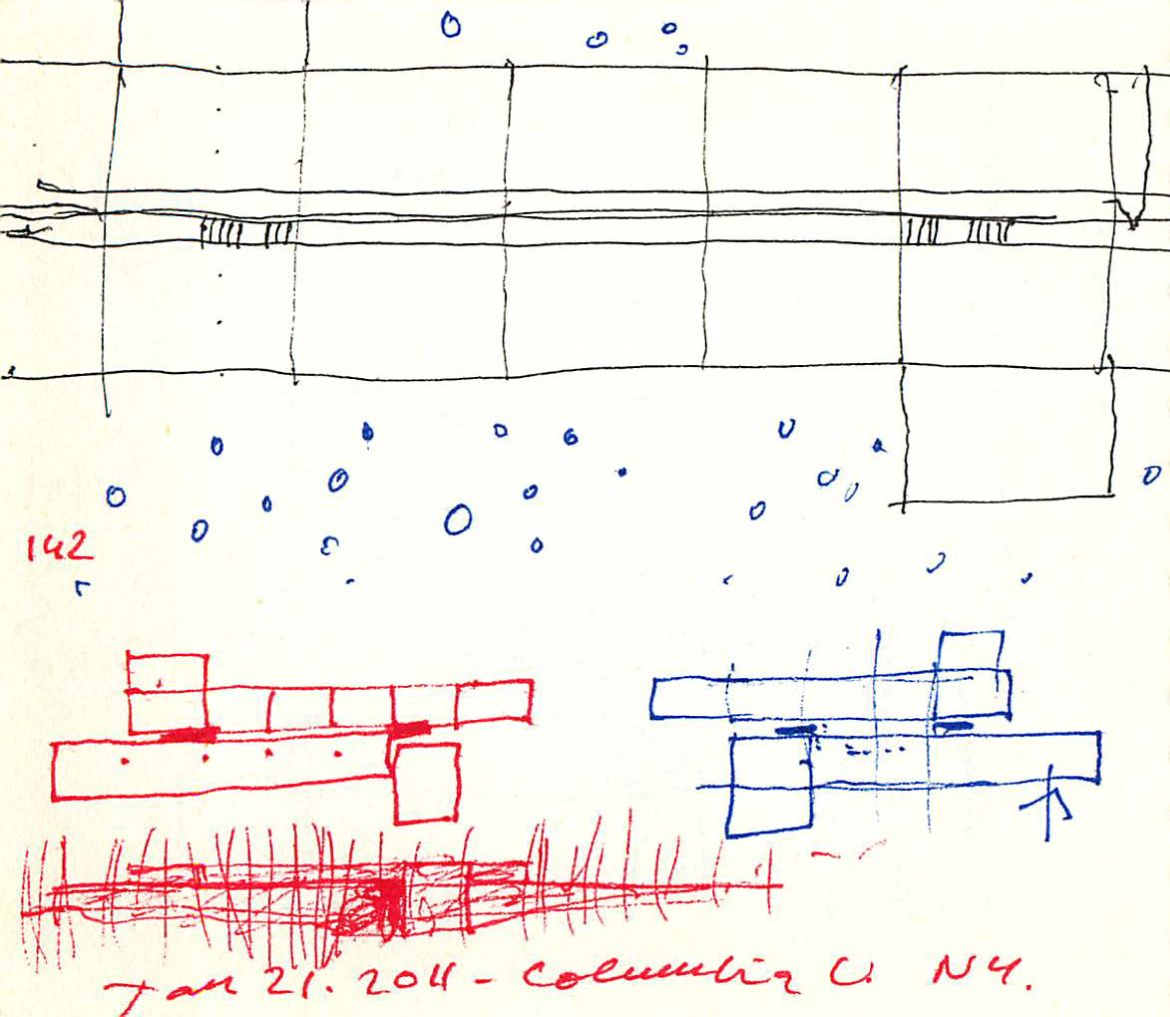 142
Jan 21. 2011 - Columbia U. NY.